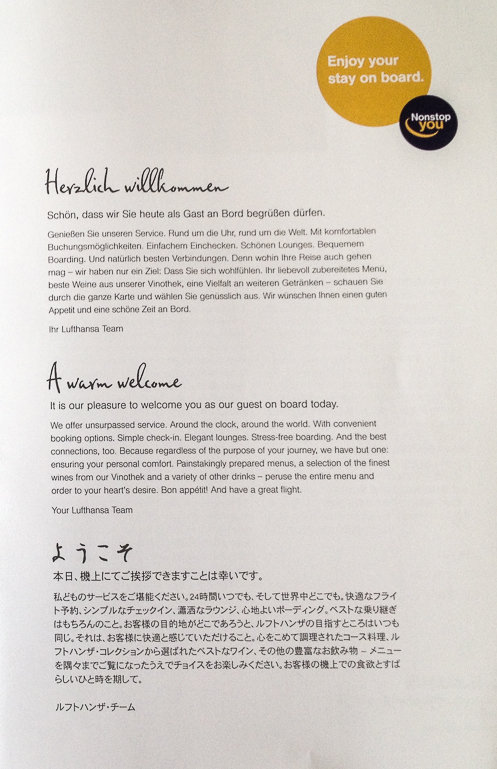 Enjoy your
stay on board.
Nonstop
you
Herzlich willkommen
Schön, dass wir Sie heute als Gast an Bord begrüßen dürfen.
Genießen Sie unseren Service. Rund um die Uhr, rund um die Welt. Mit komfortablen
Buchungsmöglichkeiten. Einfachem Einchecken. Schönen Lounges. Bequemem
Boarding. Und natürlich besten Verbindungen. Denn wohin Ihre Reise auch gehen
mag – wir haben nur ein Ziel: Dass Sie sich wohlfühlen. Ihr liebevoll zubereitetes Menü,
beste Weine aus unserer Vinothek, eine Vielfalt an weiteren Getränken – schauen Sie
durch die ganze Karte und wählen Sie genüsslich aus. Wir wünschen Ihnen einen guten
Appetit und eine schöne Zeit an Bord.
Ihr Lufthansa Team
A warm welcome
It is our pleasure to welcome you as our guest on board today.
We offer unsurpassed service. Around the clock, around the world. With convenient
booking options. Simple check-in. Elegant lounges. Stress-free boarding. And the best
connections, too. Because regardless of the purpose of your journey, we have but one:
ensuring your personal comfort. Painstakingly prepared menus, a selection of the finest
wines from our Vinothek and a variety of other drinks – peruse the entire menu and
order to your heart's desire. Bon appétit! And have a great flight.
Your Lufthansa Team
ようこそ
本日、機上にてご挨拶できますことは幸いです。
私どものサービスをご堪能ください。24時間いつでも、そして世界中どこでも。快適なフライ
ト予約、シンプルなチェックイン、瀟洒なラウンジ、心地よいボーディング。ベストな乗り継ぎ
はもちろんのこと。お客様の目的地がどこであろうと、ルフトハンザの目指すところはいつも
同じ。それは、お客様に快適と感じていただけること。心をこめて調理されたコース料理、ル
フトハンザ・コレクションから選ばれたベストなワイン、その他の豊富なお飲み物 – メニュー
を隅々までご覧になったうえでチョイスをお楽しみください。お客様の機上での食欲とすば
らしいひと時を期して。
ルフトハンザ・チーム